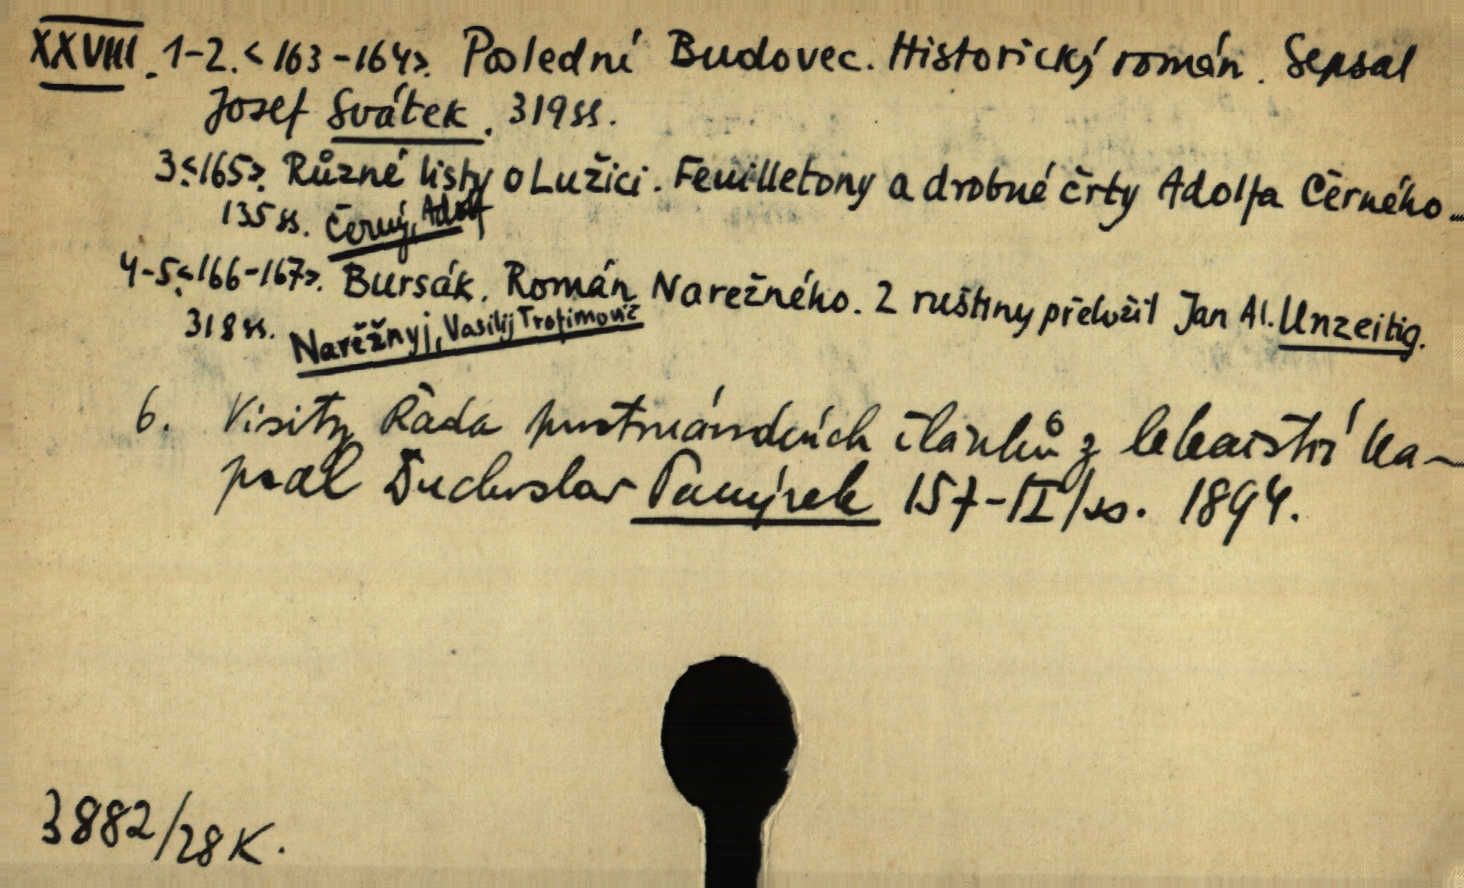 XXVIII. 1-2. <163-164>. Poslední Budovec. Historický román. Sepsal
Josef Svátek. 319 ss.
3. <165>. Různé listy o Lužici. Feuilletony a drobné črty Adolfa Černého...
135 ss. Černý, Adolf
4-5. <166-167>. Bursák. Román Narežného. Z ruštiny přeložil Jan Al. Unzeitig.
318 ss. Narěžnyj, Vasilij Trofimovič
6. Visity Řada prostnárodních článků z lékařství Na-
psal Duchoslav Panýrek 157-II/ss. 1894.
3882/28 K.